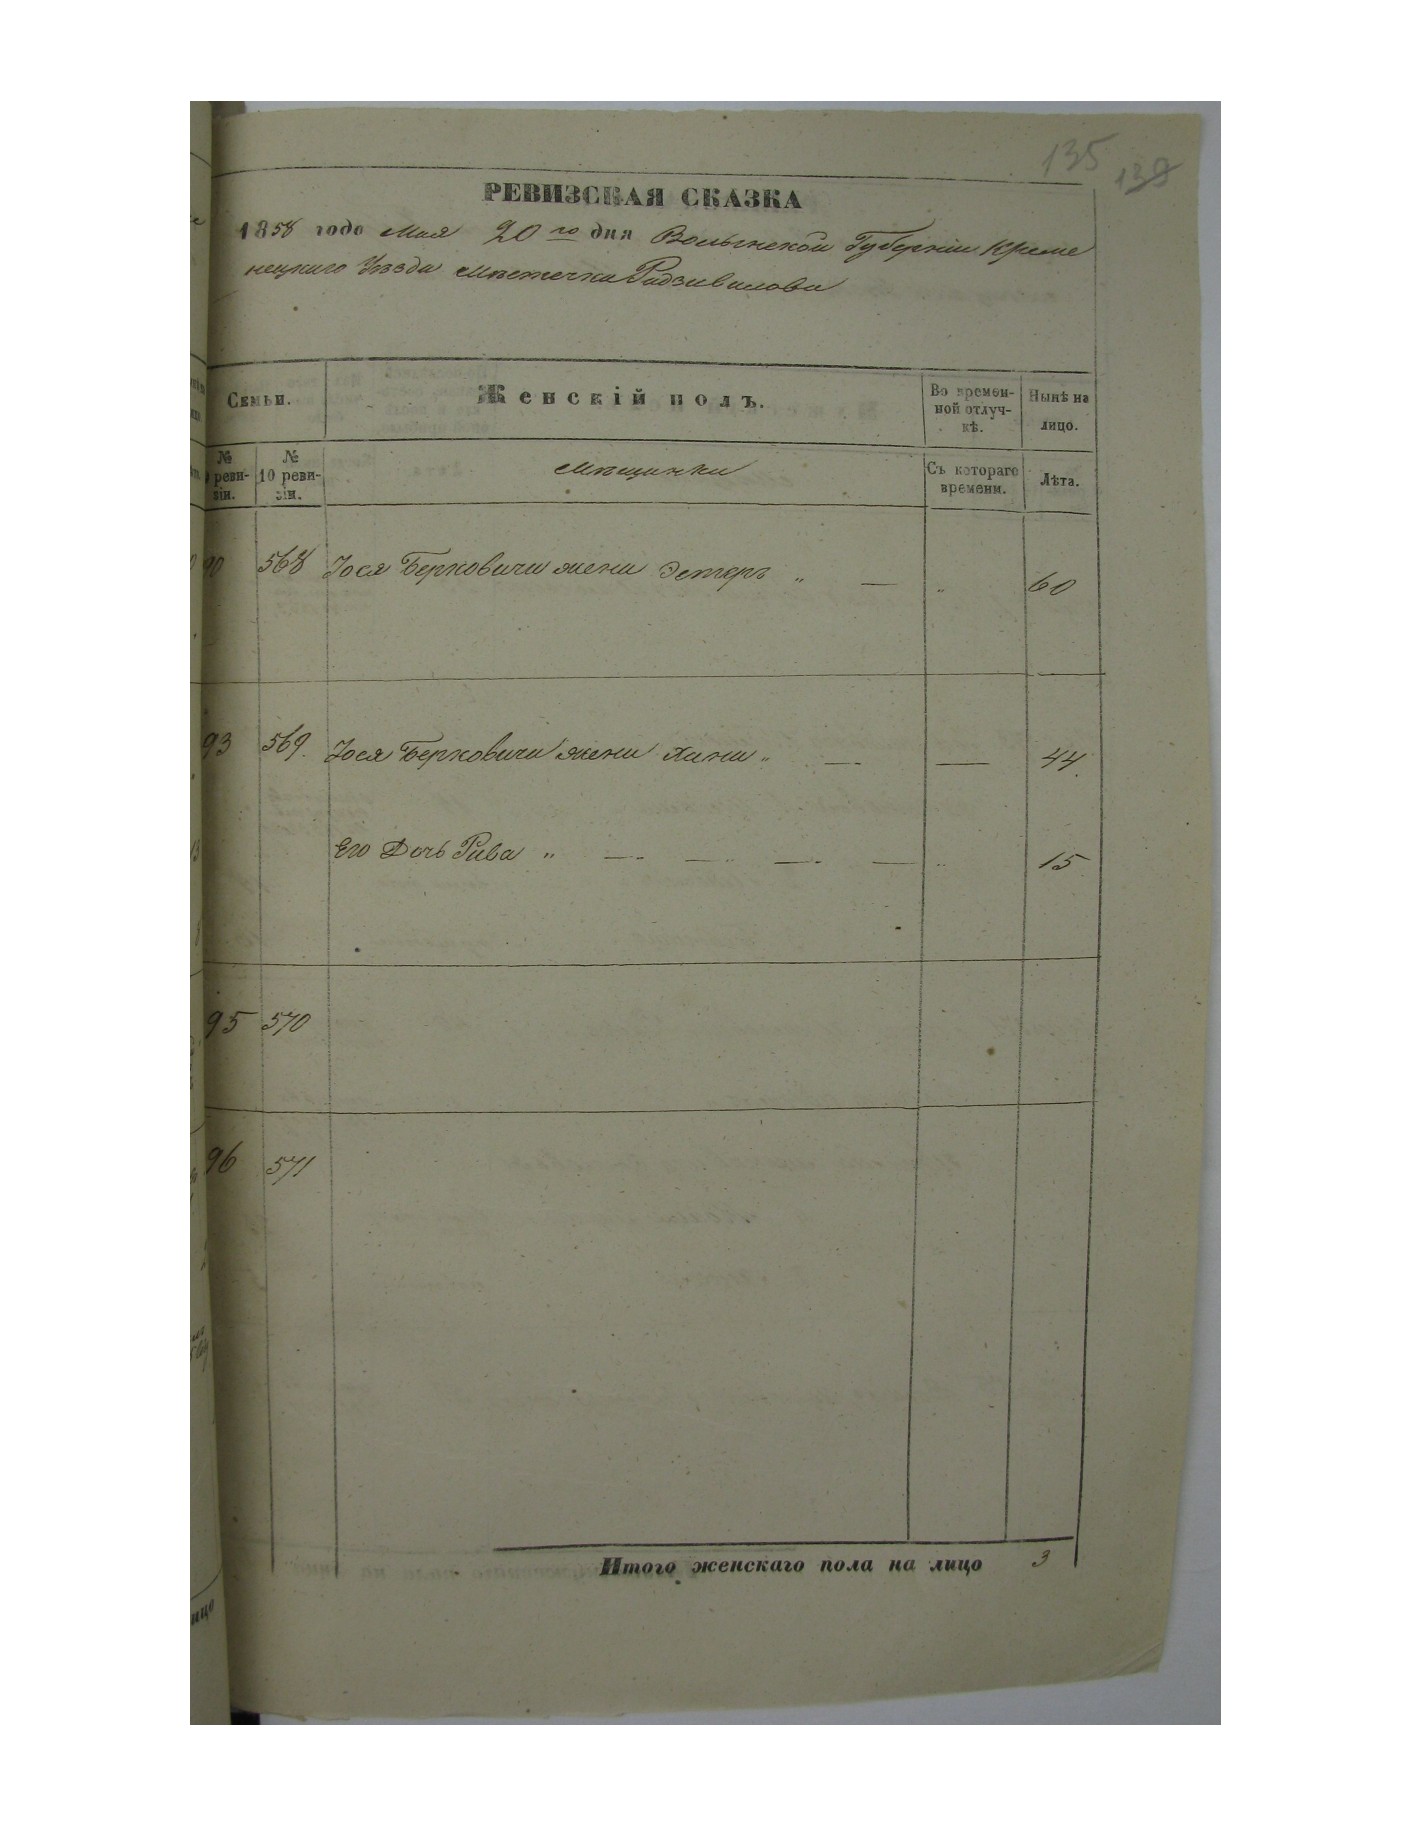 135 139
РЕВИЗСКАЯ СКАЗКА
1858 года Мая 20го дня Волынской Губерніи Креме
нецкаго Уѣзда мѣстечка Радзивилова
Семьи.
Женскій полъ.
Во времен-
ной отлуч-
кѣ.
Нынѣ на
лицо.
№
реви-
зіи.
№
10 реви-
зіи.
Мѣщанки
Съ котораго
времени.
Лѣта.
90 568 Іося Берковича жена Эстеръ „ — „ 60
93 569. Іося Берковича жена Хана „ — — 44.
Его Дочь Рива „ — — — — „ 15
95 570
96 571
Итого женскаго пола на лицо 3